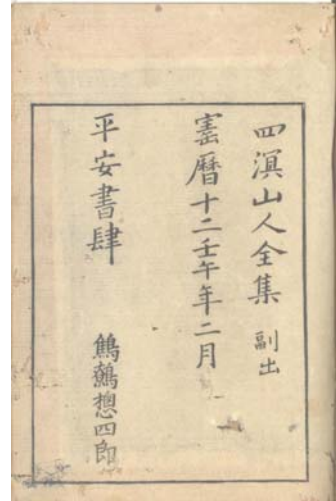 四溟山人全集 副出
寳曆十二壬午年二月
平安書肆 鷦鷯摠四郎